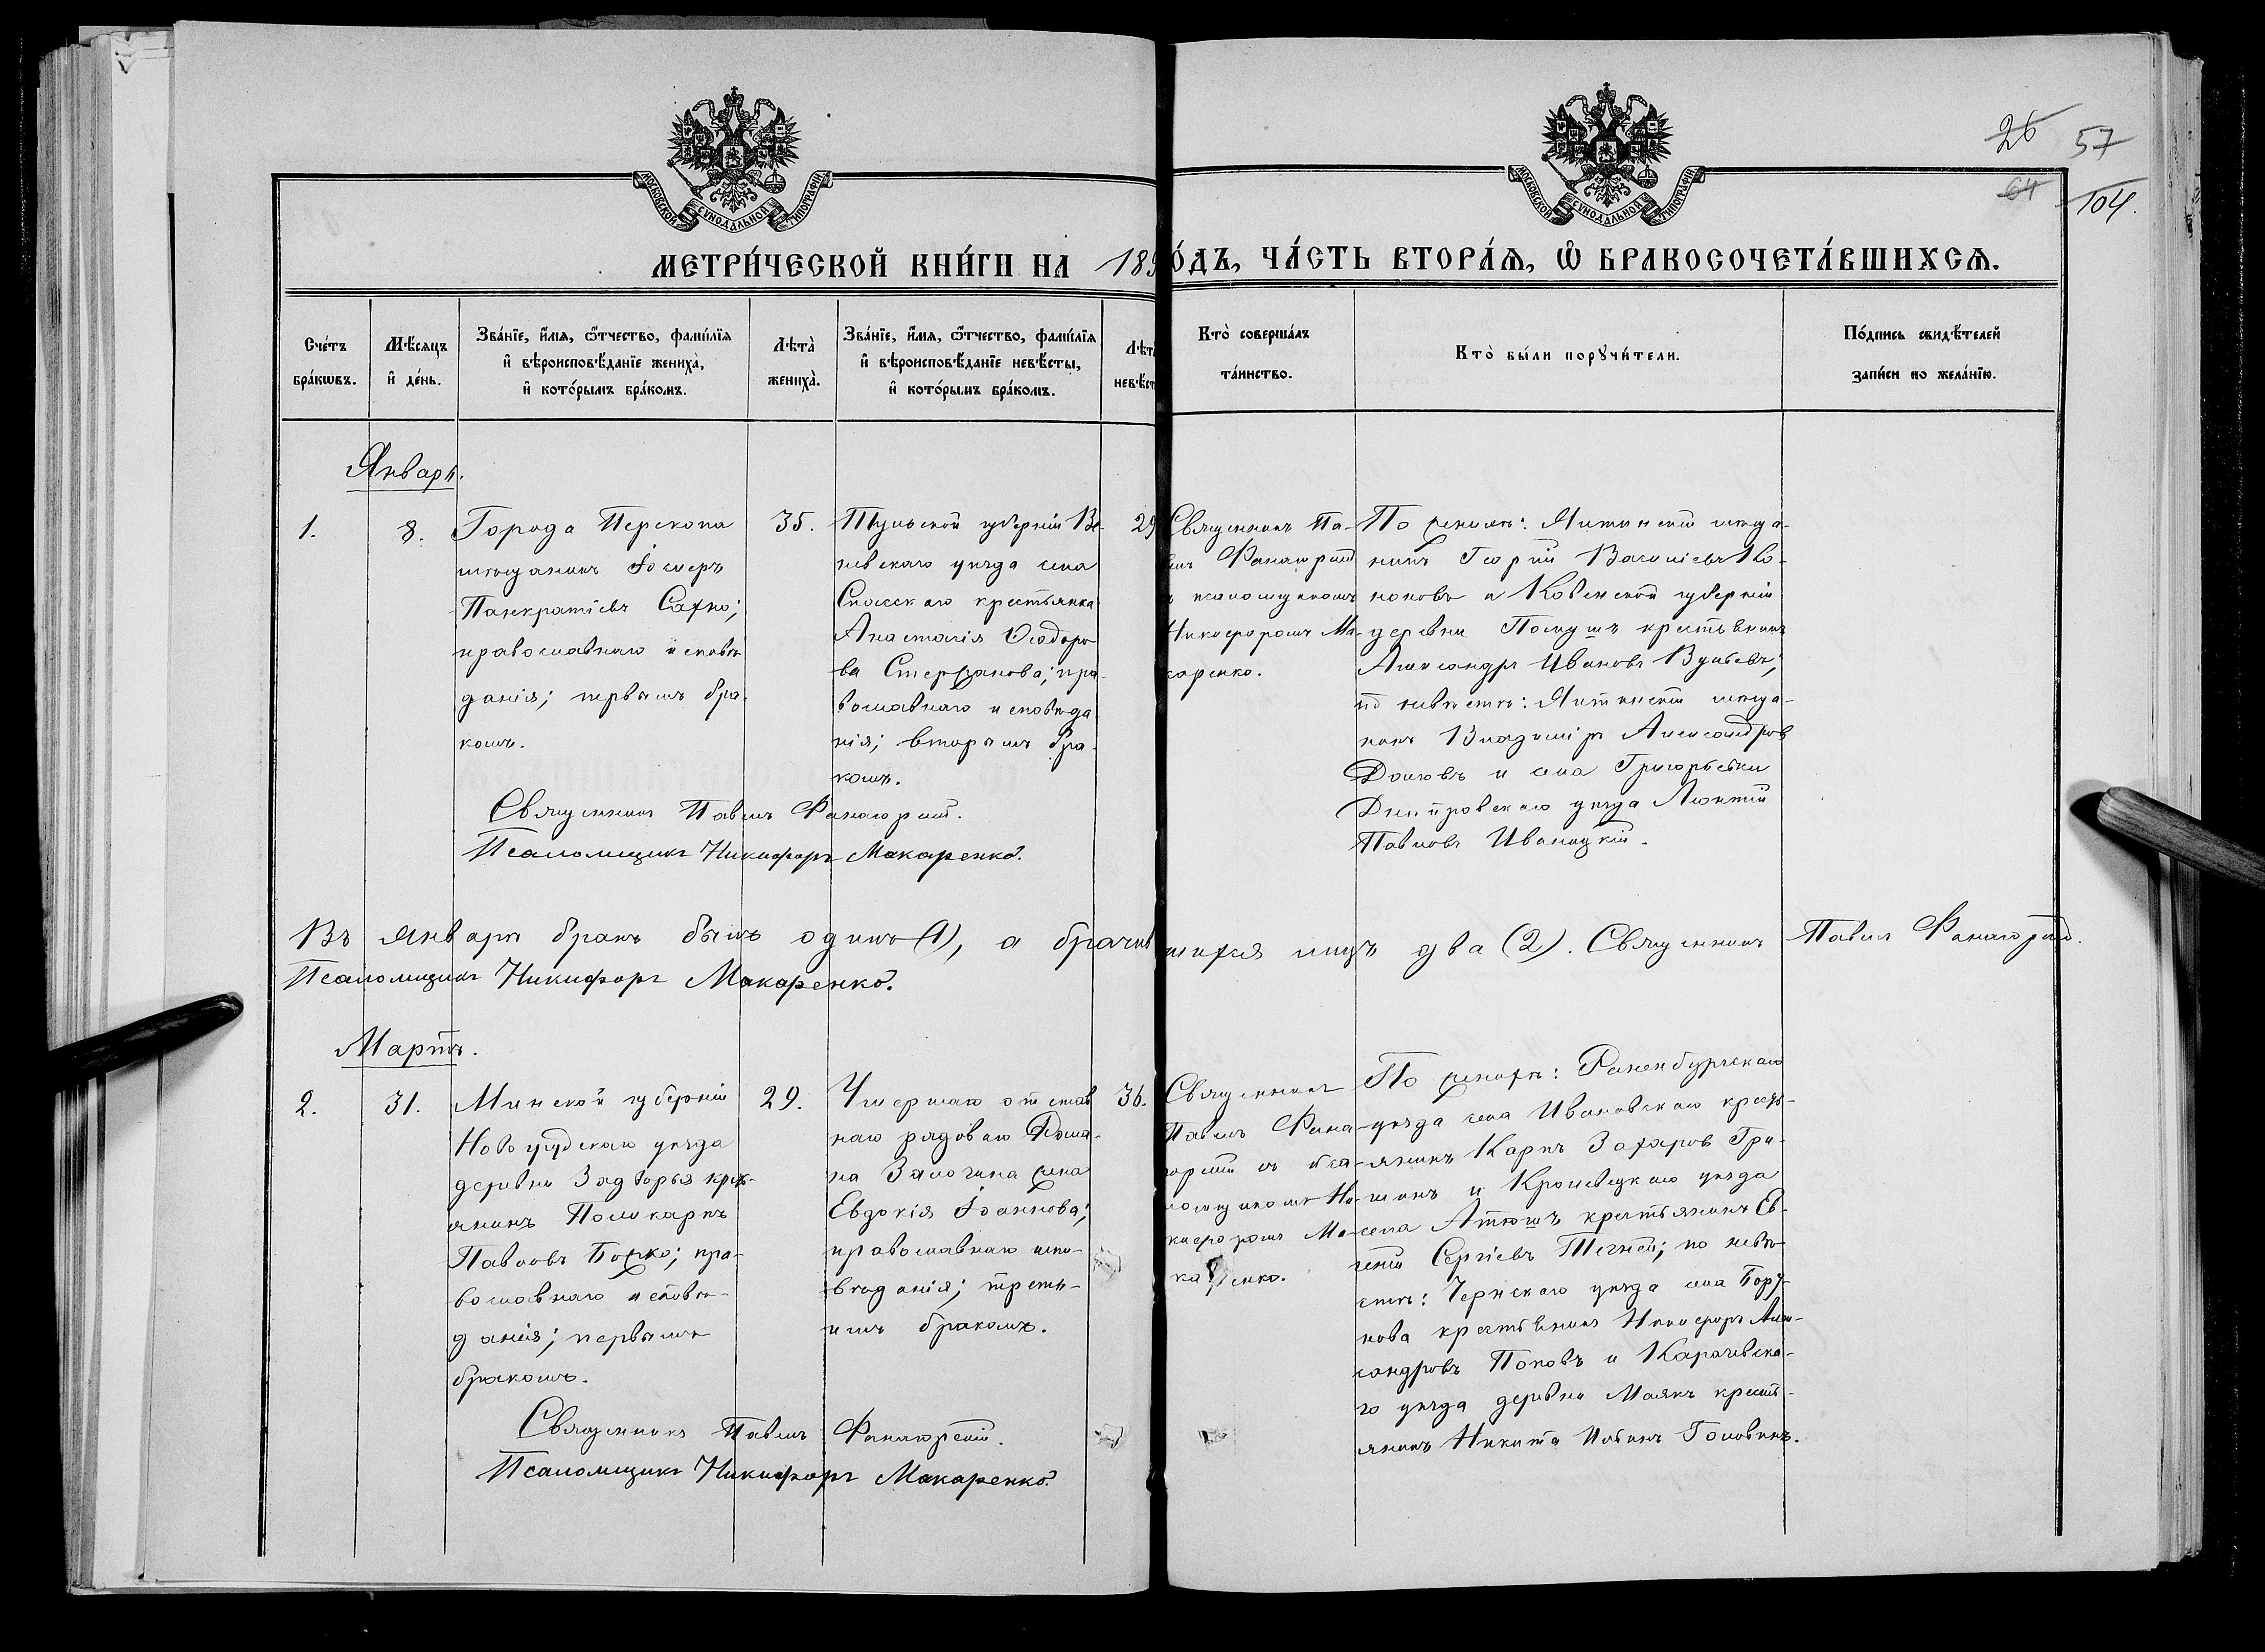 26 57
64 104.
МОСКОВСКОЙ СѴНОДАЛЬНОЙ ТИПОГРАФІИ
МОСКОВСКОЙ СѴНОДАЛЬНОЙ ТИПОГРАФІИ
МЕТРИ́ЧЕСКОЙ КНИ́ГИ НА 189
О́ДЪ, ЧА́СТЬ ВТОРА́Я, Ѡ БРАКОСОЧЕТА́ВШИХСЯ.
Сче́тъ
бра́кωвъ.
Мѣ́сяцъ
и҆ де́нь.
Зва́нїе, и҆́мя, ѻ҆́тчество, фами́лїя
и҆ вѣроисповѣ́данїе жениха̀,
и҆ кото́рымъ бра́комъ.
Лѣта̀
жениха̀.
Зва́нїе, и҆́мя, ѻ҆́тчество, фами́лїя
и҆ вѣроисповѣ́данїе невѣ́сты,
и҆ кото́рымъ бра́комъ.
Лѣт
невѣст
Кто̀ соверша́лъ
та́инство.
Кто̀ бы́ли порꙋчи́тели.
По́дпись свидѣ́телей
за́писи по жела́нїю.
Январь.
1.
8.
Города Перекопа
мѣщанинъ
Панкратіевъ Сахно;
православнаго исповѣ
данія; первымъ бра-
комъ.
35.
Тульской губерніи Ве-
невскаго уѣзда села
Спасскаго крестьянка
Анастасія Ѳеодоро
ва Стефанова; пра-
вославнаго исповѣда-
нія; вторымъ бра-
комъ.
29
Священникъ Па-
велъ Фанагорскій
псаломщикомъ
Никифоромъ Ма-
каренко.
По женихѣ: Ялтинскій мѣща-
нинъ Георгій Васильевъ Ко-
ноновъ и Ковенской губерніи
деревни крестьянинъ
Александръ Ивановъ
по невѣстѣ: Ялтинскій мѣща-
нинъ Владиміръ Александров
и села Григорьевки
Днѣпровскаго уѣзда Леонтій
Павловъ Иваницкій.
Священникъ Павелъ Фанагорскій.
Псаломщикъ Никифоръ Макаренко.
Въ январѣ бракъ былъ одинъ (1), а брачив
шихся лицъ два (2). Священникъ Павелъ Фанагорскій.
Псаломщикъ Никифоръ Макаренко.
Мартъ.
2.
31.
Минской губерніи
Новогрудскаго уѣзда
деревни Задворья крест-
янинъ Поликарпъ
Павловъ Божко; пра-
вославнаго исповѣ-
данія; первымъ
бракомъ.
29.
Умершаго отстав
наго рядоваго Рома-
на жена
Евдокія Іоаннова;
православнаго испо-
вѣданія; треть-
имъ бракомъ.
36.
Священникъ
Павелъ Фана-
горскій съ пса-
ломщикомъ Ни-
кифоромъ Ма-
каренко.
По женихѣ: Раненбургскаго
уѣзда села Ивановскаго крест-
янинъ Карпъ Захаров Гри-
шинъ и Кролевецкаго уѣзда
села Атюшъ крестьянинъ Ев-
геній Сергіевъ по невѣ-
стѣ: Чернскаго уѣзда села
крестьянинъ Никифоръ Алек-
сандровъ Поповъ и Карачевска-
го уѣзда деревни Маякъ кресть-
янинъ Никита Ильинъ Головинъ.
Священникъ Павелъ Фанагорскій.
Псаломщикъ Никифоръ Макаренко.